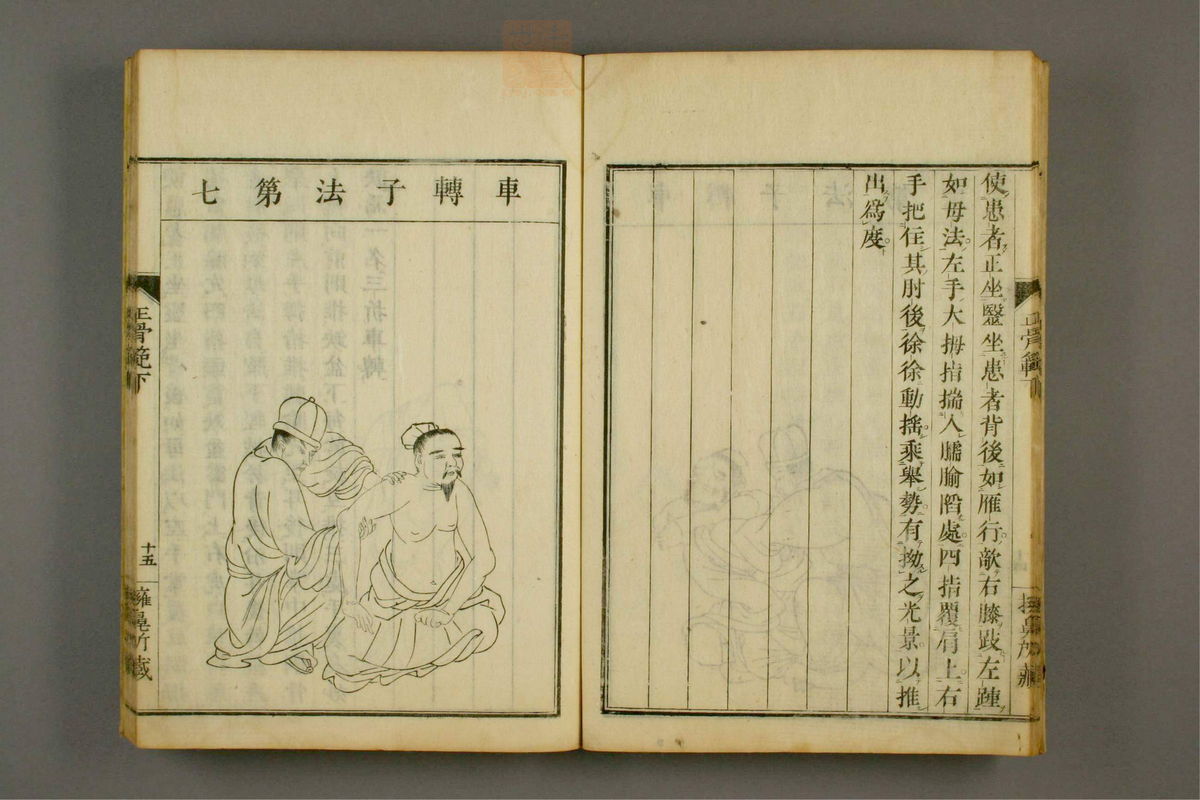 使患者正坐毉坐患者背後如雁行敵右膝跂左踵
如母法左手大拇指揣入臑腧陷處四指覆肩上右
手把住其肘後徐徐動搖乘舉勢有拗之光景以推
出爲度
車轉子法第七
正骨範下
十五